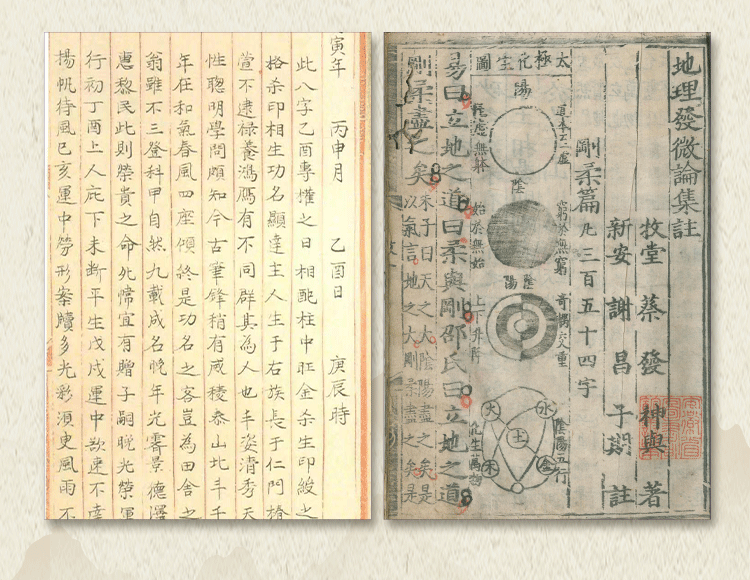 地理發微論集註
牧堂蔡發神與著
新安謝昌子期註
剛柔篇凡三百五十四字
太極化生圖
陽
陰
窮於無窮
始於無始
陰陽
上下升降
陰陽五行
化生萬物
火 水
土
木 金
易曰立地之道曰柔與剛邵氏曰立地之道
剛柔盡之矣
朱子曰天之大陰陽盡之矣是
以氣言地之大剛柔盡之矣是
寅年 丙申月 乙酉日 庚辰時
此八字乙酉專權之日相配柱中旺金杀生印綬之
格杀印相生功名顯達主人生于右族長于仁門椿
萱不逮祿養鴻鴈有不同群其為人也丰姿清秀天
性聰明學問頗知今古筆鋒稍有威稜泰山北斗千
年在和氣春風四座傾終是功名之客豈為田舍之
翁雖不三登科甲自然九載成名晚年光霽景德澤
惠黎民此則榮貴之命死帰宜有贈子嗣晚光榮運
行初丁酉上人庇下未斷平生戊戌運中欲速不達
揚帆待風己亥運中勞形案牘多光彩須更風雨不